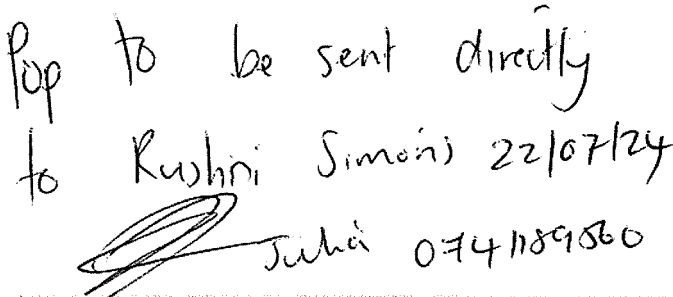 Pop to be sent directly
to Rushni Simons 22/07/24
0741189860